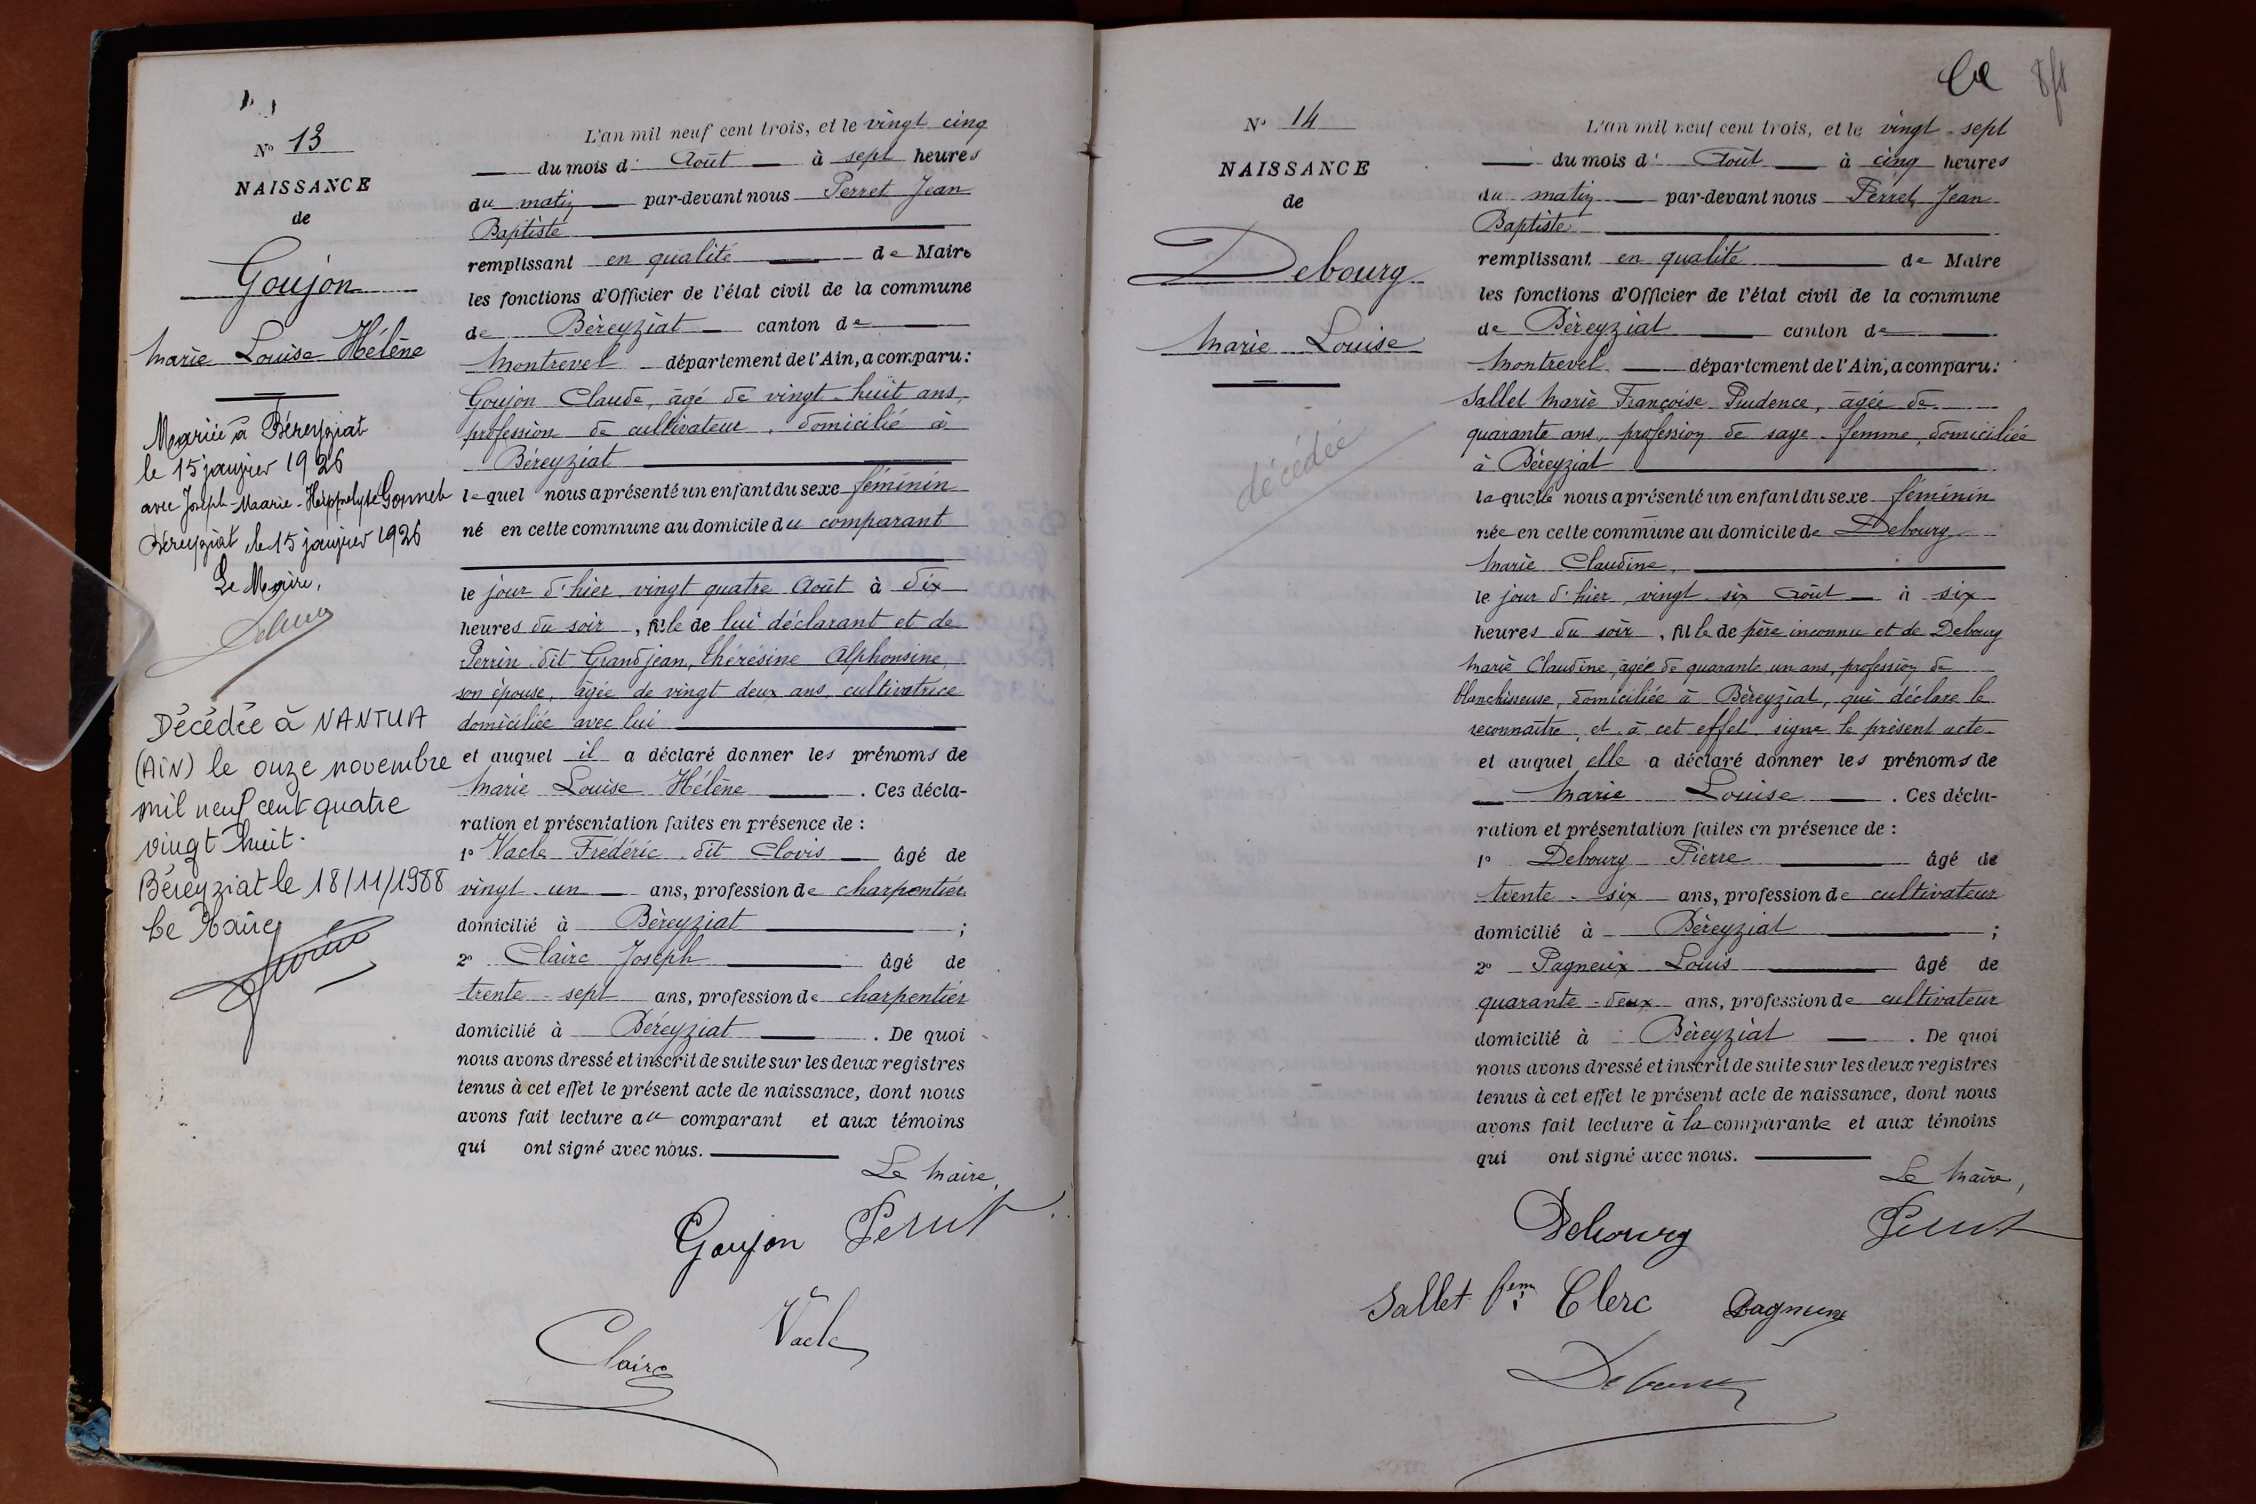 Nº 13
NAISSANCE
de
Goujon
Marie Louise Hélène
Mariée à Béreyziat
le 15 janvier 1926
avec Joseph-Marie-Hippolyte Gonnet
Béreyziat le 15 janvier 1926
Le Maire,
Décédée à NANTUA
(AIN) le onze novembre
mil neuf cent quatre
vingt huit.
Béreyziat le 18/11/1988
Le Maire
L'an mil neuf cent trois, et le vingt cinq
du mois d' Août à sept heures
du matin par-devant nous Perret Jean
Baptiste
remplissant en qualité de Maire
les fonctions d'Officier de l'état civil de la commune
de Béreyziat canton de
Montrevel département de l'Ain, a comparu:
Goujon Claude, âgé de vingt-huit ans,
profession de cultivateur, domicilié à
Béreyziat
lequel nous a présenté un enfant du sexe féminin
né en cette commune au domicile du comparant
le jour d'hier vingt quatre Août à dix
heures du soir, fille de lui déclarant et de
Perrin dit Grandjean, thérésine Alphonsine,
son épouse, âgée de vingt deux ans, cultivatrice
domiciliée avec lui
et auquel il a déclaré donner les prénoms de
Marie Louise Hélène. Ces décla-
ration et présentation faites en présence de:
1º Vacle Frédéric dit Clovis âgé de
vingt un ans, profession de charpentier
domicilié à Béreyziat;
2º Claire Joseph âgé de
trente-sept ans, profession de charpentier
domicilié à Béreyziat. De quoi
nous avons dressé et inscrit de suite sur les deux registres
tenus à cet effet le présent acte de naissance, dont nous
avons fait lecture au comparant et aux témoins
qui ont signé avec nous.
Le Maire,
Goujon Perret
Vacle
Claire
Nº 14
NAISSANCE
de
Debourg
Marie Louise
décédée
L'an mil neuf cent trois, et le vingt-sept
du mois d' Août à cinq heures
du matin par-devant nous Perret Jean
Baptiste
remplissant en qualité de Maire
les fonctions d'Officier de l'état civil de la commune
de Béreyziat canton de
Montrevel département de l'Ain, a comparu:
Sallet Marie Françoise Prudence, âgée de
quarante ans, profession de sage-femme, domiciliée
à Béreyziat
laquelle nous a présenté un enfant du sexe féminin
née en cette commune au domicile de Debourg
Marie Claudine,
le jour d'hier vingt six Août à six
heures du soir, fille de père inconnu et de Debourg
Marie Claudine, âgée de quarante un ans, profession de
blanchisseuse, domiciliée à Béreyziat, qui déclare le
reconnaître, et à cet effet signe le présent acte
et auquel elle a déclaré donner les prénoms de
Marie Louise. Ces décla-
ration et présentation faites en présence de:
1º Debourg Pierre âgé de
trente-six ans, profession de cultivateur
domicilié à Béreyziat;
2º Pagneux Louis âgé de
quarante-deux ans, profession de cultivateur
domicilié à Béreyziat. De quoi
nous avons dressé et inscrit de suite sur les deux registres
tenus à cet effet le présent acte de naissance, dont nous
avons fait lecture à la comparante et aux témoins
qui ont signé avec nous.
Le Maire,
Debourg Perret
Sallet fem Clerc Pagneux
Debourg